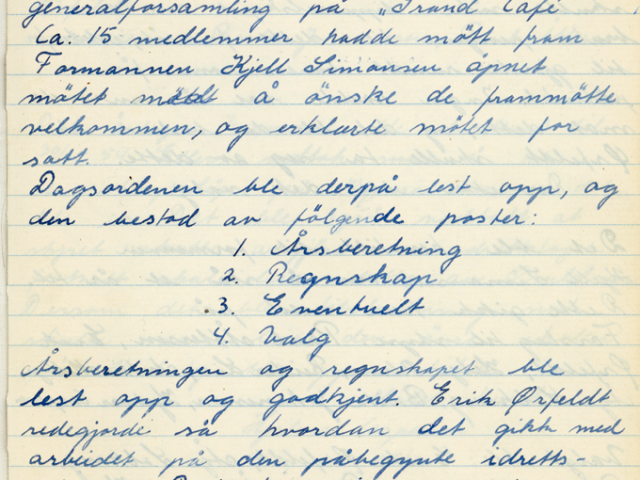 generalforsamling på „Grand Café
Ca. 15 medlemmer hadde mött fram
Formannen Kjell Simonsen åpnet
mötet med å önske de frammötte
velkommen, og erklærte mötet for
satt.
Dagsordenen ble derpå lest opp, og
den bestod av fölgende poster:
1. Årsberetning
2. Regnskap
3. Eventuelt
4. Valg
Årsberetningen og regnskapet ble
lest opp og godkjent. Erik Ørfeldt
redegjorde så hvordan det gikk med
arbeidet på den påbegynte idretts-